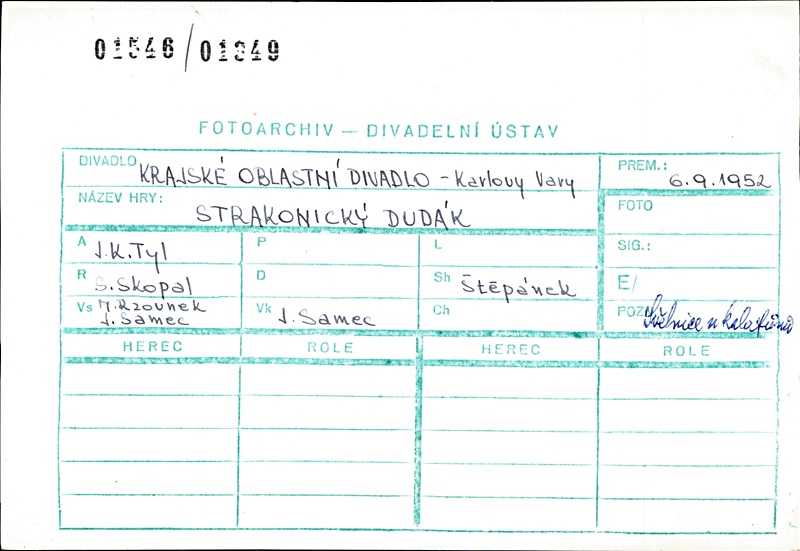 01546/01349
FOTOARCHIV — DIVADELNÍ ÚSTAV
DIVADLO KRAJSKÉ OBLASTNÍ DIVADLO - Karlovy Vary
PREM.: 6.9.1952
NÁZEV HRY: STRAKONICKÝ DUDÁK
FOTO
A J.K.Tyl
P
L
SIG.:
R S.Skopal
D
Sh Štěpánek
E/
Vs J. Samec
Vk J. Samec
Ch
POZ
HEREC ROLE HEREC ROLE